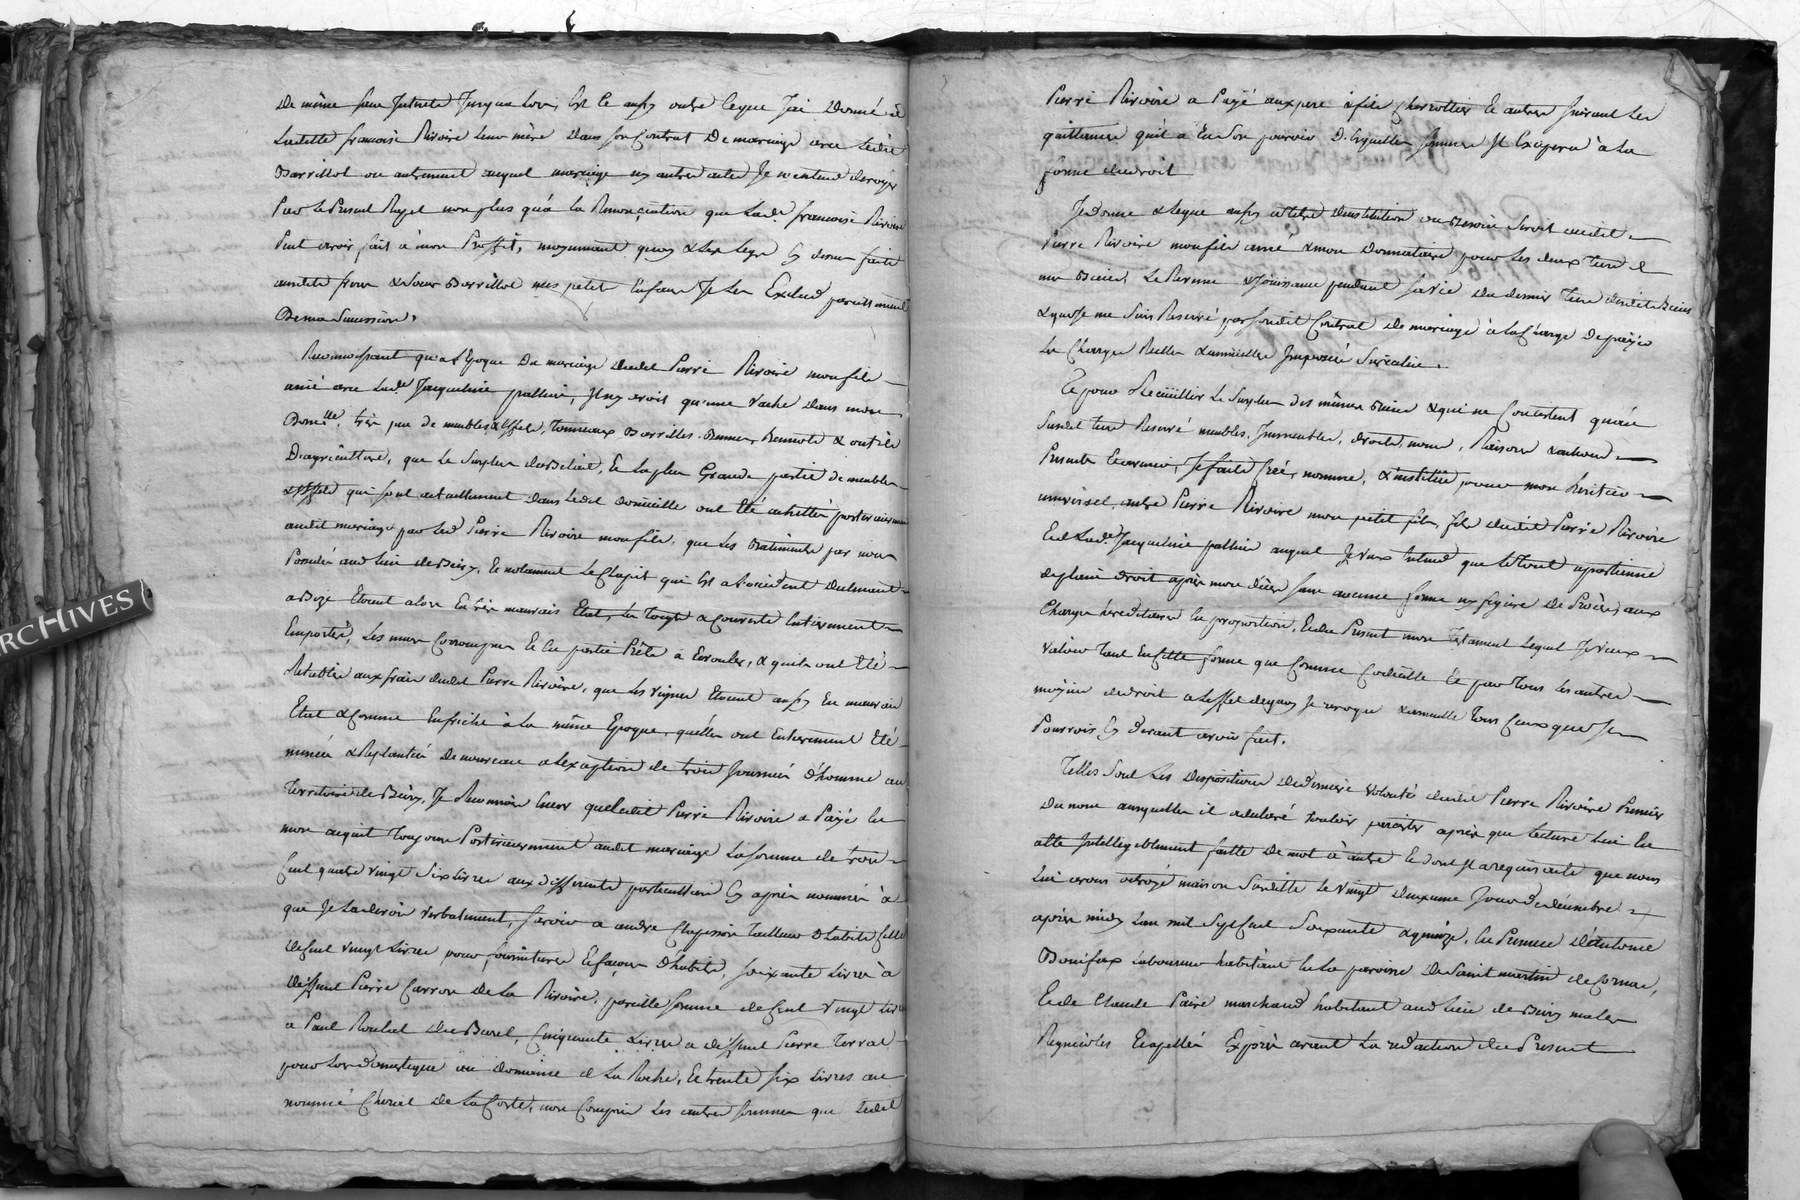 De même sans Interets Jusqua lors, Est Ce aussy outre Ce que Jai Donné à
Laditte francoise Rivoire leur mère Dans son Contrat De mariage avec ledit
Barrillot ou autrement auquel mariage ny autre acte Je n'entend deroger
Par Le Present Rejet non plus qu'à la Renonciation que Lad.e francoise Rivoire
Peut avoir fait à mon Proffit, moyennant quoy & Les Legs Cy dessus faits
auxdits frere & sœur Barrillot mes petits Enfans Je Les Exclud
De ma Succession.
Reconnoissant qu'a L'Epoque Du mariage dudit Pierre Rivoire mon fils
ainé avec Lad.e Jacqueline pallien, Il ny avoit qu'une vache Dans mon
Dom.lle très peu de meubles & Effets, Tonneaux Barrilles Bennes Bennots & outils
D'agriculture, que Le Surplus du Betail, Et La plus Grande partie de meubles
& Effets qui sont actuellement dans ledit domicille ont été achettés posterieurement
audit mariage par led. Pierre Rivoire mon fils, que Les Batiments par nous
Possedés aud. lieu de Bury, Et notament Le Chapit qui Est a L'occident
Etoient alors En très mauvais Etat, les Toits & Couverts Entierement
Emportés, Les murs Corrompus Et En partie Prêts à Ecrouler, & quils ont été
Retablis aux frais dudit Pierre Rivoire, que Les vignes Etoient aussy En mauvais
Etat & Comme En friche à La même Epoque, qu'elles ont Entierement été
minées & Replantées De nouveau a L'exception de trois Journées d'homme au
Territoire de Bury, Je Reconnois Encore que Ledit Pierre Rivoire a Payé En
mon acquit Toujours Posterieurement audit mariage La somme de trois
Cent quatre vingt Six Livres aux differents particuliers Cy après nommés à
qui Je La devois verbalement, savoir a andre Chapuson Tailleur d'habits Celle
de Cent vingt Livres pour fournitures & façons d'habits, soixante Livres à
deffunt Pierre Carron de La Rivoire, pareille somme de Cent vingt Livres
a Paul Rouhet du Buret, Cinquante Livres a deffunt Pierre Terrat
pour Lors domestique au domaine de La Roche, Et trente six Livres au
nommé Cheval De La Coste, non Compris Les autres sommes que Ledit
Pierre Rivoire a Payé aux pere & fils Cherrottier Et autres suivant Les
quittances qu'il a En Son pouvoir Desquelles sommes Il Exigera à La
forme du droit
Je donne & Legue aussy a titre d'institution ou autre Droit audit
Pierre Rivoire mon fils ainé & mon Donnataire pour Les deux Tiers de
mes Biens, Le Revenu & Jouissance pendant sa vie Du dernier Tiers desdits Biens
& que Je me suis Reservé par son dit Contrat de mariage à La Charge de payer
Les Charges Réelles & annuelles Imposées Sur Icelui.
Et pour Recüeillir Le Surplus des mêmes Biens & qui ne Consistent qu'au
Susdit tiers Reservé meubles, Immeubles, droits, noms, Raisons & actions
Presents Et avenir, Je fais, Créé, nomme, & institüe pour mon heritier
universel autre Pierre Rivoire mon petit fils, fils dudit Pierre Rivoire
Et de Lad.e Jacqueline pallien auquel Je veux Entend que Le Tout apartienne
de plain droit après mon décès sans aucune forme ny figure De Procès, aux
Charges hereditaires En proportion, Et du Present mon Testament Lequel Je veux
valoir Tant En Cette forme que Comme Codicille Et par Tous Les autres
moyens de droit a L'effet de quoy Je revoque & annulle Tous Ceux que Je
Pourrois Cy devant avoir fait.
Telles Sont Les dispositions de derniere volonté dudit Pierre Rivoire Premier
Du nom auxquelles il a declaré vouloir persister après que Lecture Lui En
a été Intelligiblement faitte De mot à autre Et dont Il a requis acte que nous
Lui avons octroyé maison Susditte Le vingt deuxieme Jour de decembre
après midy L'an mil Sept Cent Soixante & quinze, En Presence d'antoine
Bonifax Laboureur habitant En La paroisse de Saint martin de Cornas,
Et de Claude Paire marchand habitant aud. lieu de Bury males
Regnicoles Et apellés Exprès avant La rédaction du Present